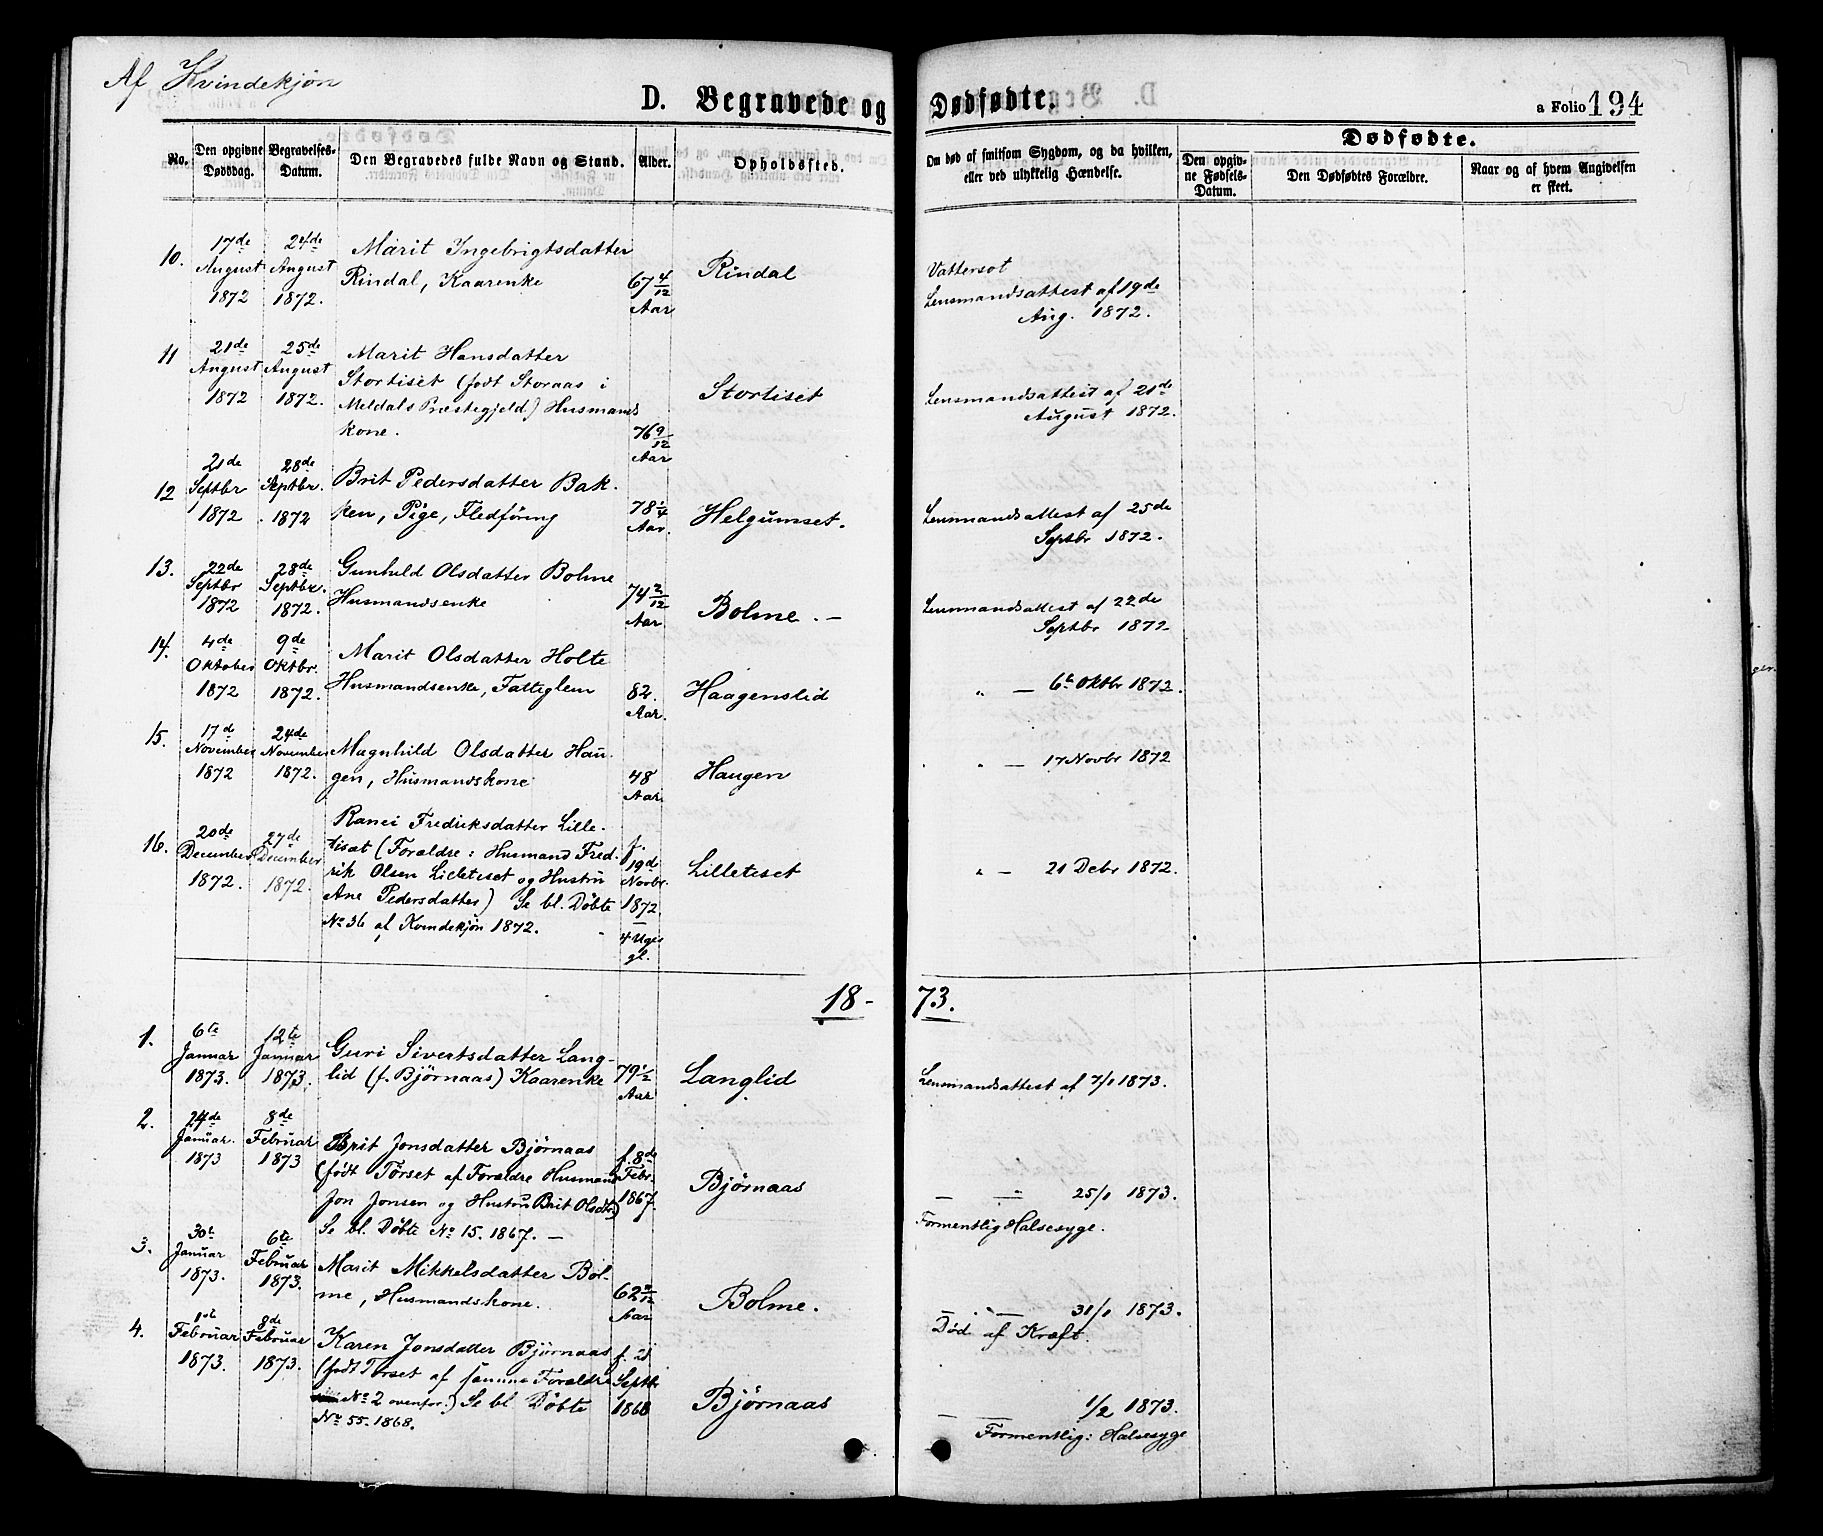 Af Kvindekjøn
D. Begravede og Dødfødte.
a Folio 194
No.
Den opgivne Dødsdag.
Begravelses-Datum.
Den Begravedes fulde Navn og Stand.
Alder.
Opholdssted.
Om død af smitsom Sygdom, og da hvilken,
eller ved ulykkelig Hændelse.
Dødfødte.
Den opgiv-
ne Fødsels-
Datum.
Den Dødfødtes Forældre.
Naar og af hvem Angivelsen
er skeet.
10.
17de
August
1872
24de
August
1872.
Marit Ingebrigtsdatter
Rindal, Kaarenke
67 4/12
Aar
Rindal
Vattersot
Lensmandsattest af 19de
Aug. 1872.
11
21de
August
1872
25de
August
1872.
Marit Hansdatter
Stortiset (født Storaas i
Meldals Præstegjeld) Husmands
kone.
76 9/12
Aar
Stortiset
Lensmandsattest af 21de
August 1872.
12
21de
Septbr
1872
28de
Septbr.
1872
Brit Pedersdatter Bak-
ken, Pige, Fledføring
78 1/4
Aar.
Helgumset.
Lensmandsattest af 25de
Septbr 1872.
13.
22de
Septbr
1872
28de
Septbr.
1872.
Gunhild Olsdatter Bolme
Husmandsenke
74 2/12
Aar
Bolme. —
Lensmandsattest af 22de
Septbr 1872
14.
4de
Oktober
1872
9de
Oktbr.
1872.
Marit Olsdatter Holte
Husmandsenke, Fattiglem
82.
Aar.
Haagenslid
" — 6te Oktbr 1872.
15.
17d
November
1872
24de
November
1872.
Magnhild Olsdatter Hau-
gen, Husmandskone
48
Aar.
Haugen
" — 17 Novbr 1872
16.
20de
December
1872.
27de
December
1872.
Ranei Fredriksdatter Lille-
tisæt (Forældre: Husmand Fred-
rik Olsen Lilletiset og Hustru
Ane Pedersdatter) Se bl. Døbte
No 36 af Kvindekjøn 1872.
f.
19d
Novbr.
1872
4 Uger
gl.
Lilletiset
" — 21 Debr 1872.
18-73.
1.
6te
Januar
1873.
12te
Januar
1873.
Guri Sivertsdatter Lang-
lid (f. Bjørnaas) Kaarenke
79 1/2
Aar
Langlid
Lensmandsattest af 7/1 1873.
2.
24de
Januar.
1873
8de
Februar
1873
Brit Jonsdatter Bjørnaas
(født Tørset af Forældre Husmand
Jon Jonsen og Hustru Brit Olsdtr)
Se bl. Døbte No 15. 1867. —
f. 8de
Febr.
1867.
Bjørnaas
— " — 25/1 1873.
Formentlig Halsesyge.
3.
30te
Januar
1873.
6te
Februar
1873.
Marit Mikkelsdatter Bol-
me, Husmandskone.
Aar
Bolme.
— " — 31/1 1873.
Død af Kræft.
4.
1ste
Februar
1873.
8de
Februar
1873.
Karen Jonsdatter Bjørnaas
(født Tørset af samme Forældre
No 2 ovenfor.) Se bl Døbte
No 55. 1868.
f. 21
Septbr
1868
Bjørnaas
— — 1/2 1873.
Formentlig: Halsesyge